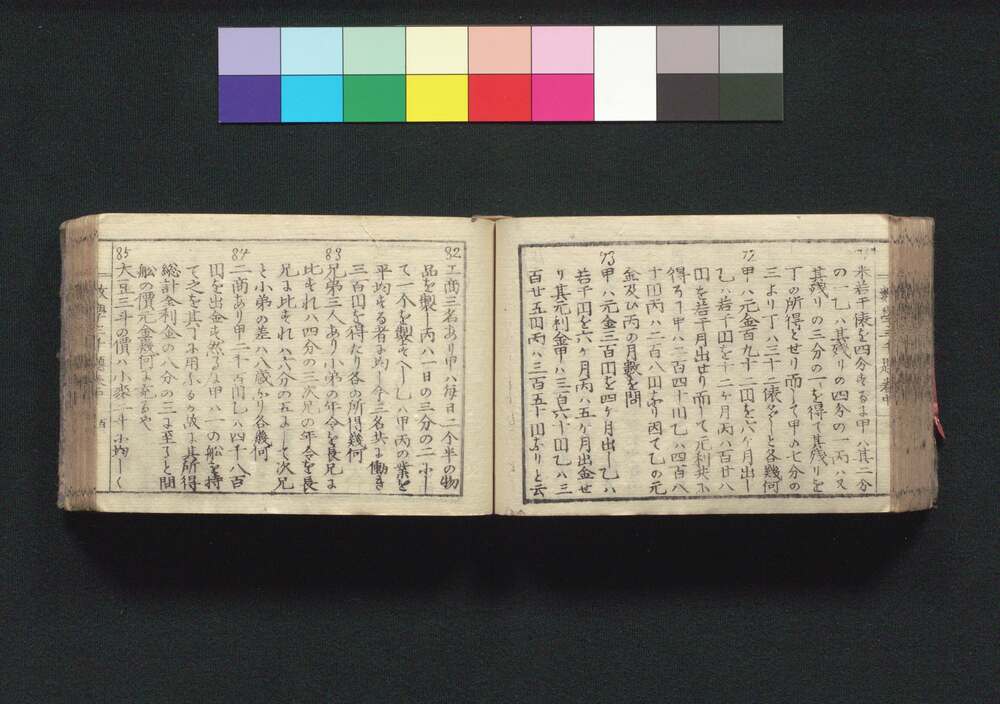 米若干俵を四分するに甲ハ其二分
の一乙ハ其殘りの四分の一丙ハ又
其殘りの三分の一を得て其殘りを
丁の所得とせり而して甲の七分の
三より丁ハ三十二俵多しと各幾何
72 甲ハ元金百九十二円を六ケ月出し
乙ハ若干円を十二ケ月丙ハ百廿八
円を若干月出せり而して元利共に
得る丁甲ハ二百四十円乙ハ四百八
十円丙ハ二百八円より因て乙の元
金及ひ丙の月數を問
73 甲ハ元金三百円を四ケ月出し乙ハ
若干円を六ケ月丙ハ五ケ月出金せ
り其元利金甲ハ三百六十円乙ハ三
百廿五円丙ハ三百五十円なりと云
82 工商三名あり甲ハ毎日二個半の物
品を製し丙ハ一日の三分の二にし
て一个を製すへし乙ハ甲丙の業を
平均する者に均し今三名共に働き
三百円を得たり各の所得幾何
83 兄弟三人あり小弟の年令を長兄に
比すれハ四分の三次兄の年令を長
兄に比すれハ六分の五にして次兄
と小弟の差ハ八歳なり各幾何
84 二商あり甲二千百円乙ハ四千八百
円を出金す然るに甲ハ一の舩を持
て之を其丁に用ふるか故に其所得
総計金利金の八分の三に至ると問
舩の價元金幾何に充るや
85 大豆三斗の價ハ小麥一斗に均しく